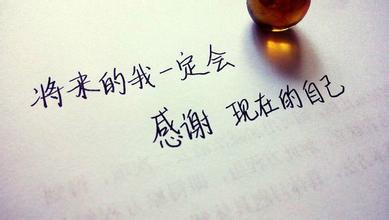 将来的我一定会
感谢 现在的自己